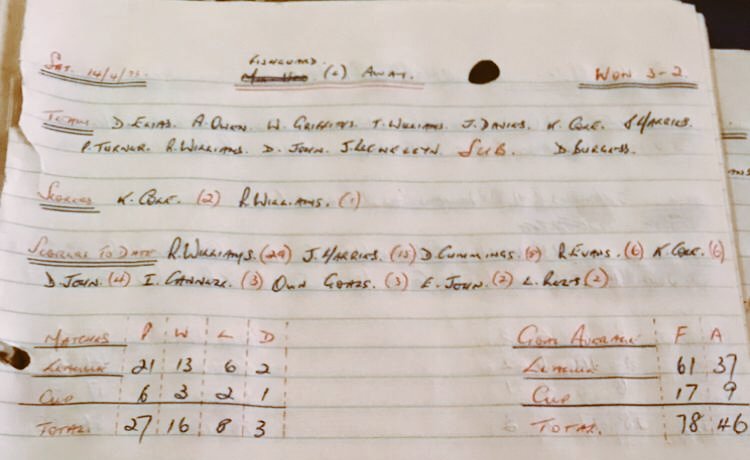 SAT. 14/4/73. FISHGUARD. (L) AWAY. WON 3-2
TEAM D. EVANS A. OWEN. W. GRIFFITHS. T. WILLIAMS. J. DAVIES. K. CORE. J HARRIES.
P. TURNER. R. WILLIAMS. D. JOHN. J. LLEWELLYN. SUB. D. BURGESS.
SCORERS K. CORE. (2) R. WILLIAMS. (1)
SCORERS TO DATE R. WILLIAMS. (29) J. HARRIES. (15) D. CUMMINGS. R. EVANS. (6) K. CORE. (6)
D. JOHN. (4) I. (3) OWN GOALS. (3) E. JOHN. (2) L.
MATCHES P W L D GOAL AVERAGE F A
LEAGUE 21 13 6 2 LEAGUE 61 37
CUP 6 3 2 1 CUP 17 9
TOTAL. 27 16 8 3 TOTAL. 78 46